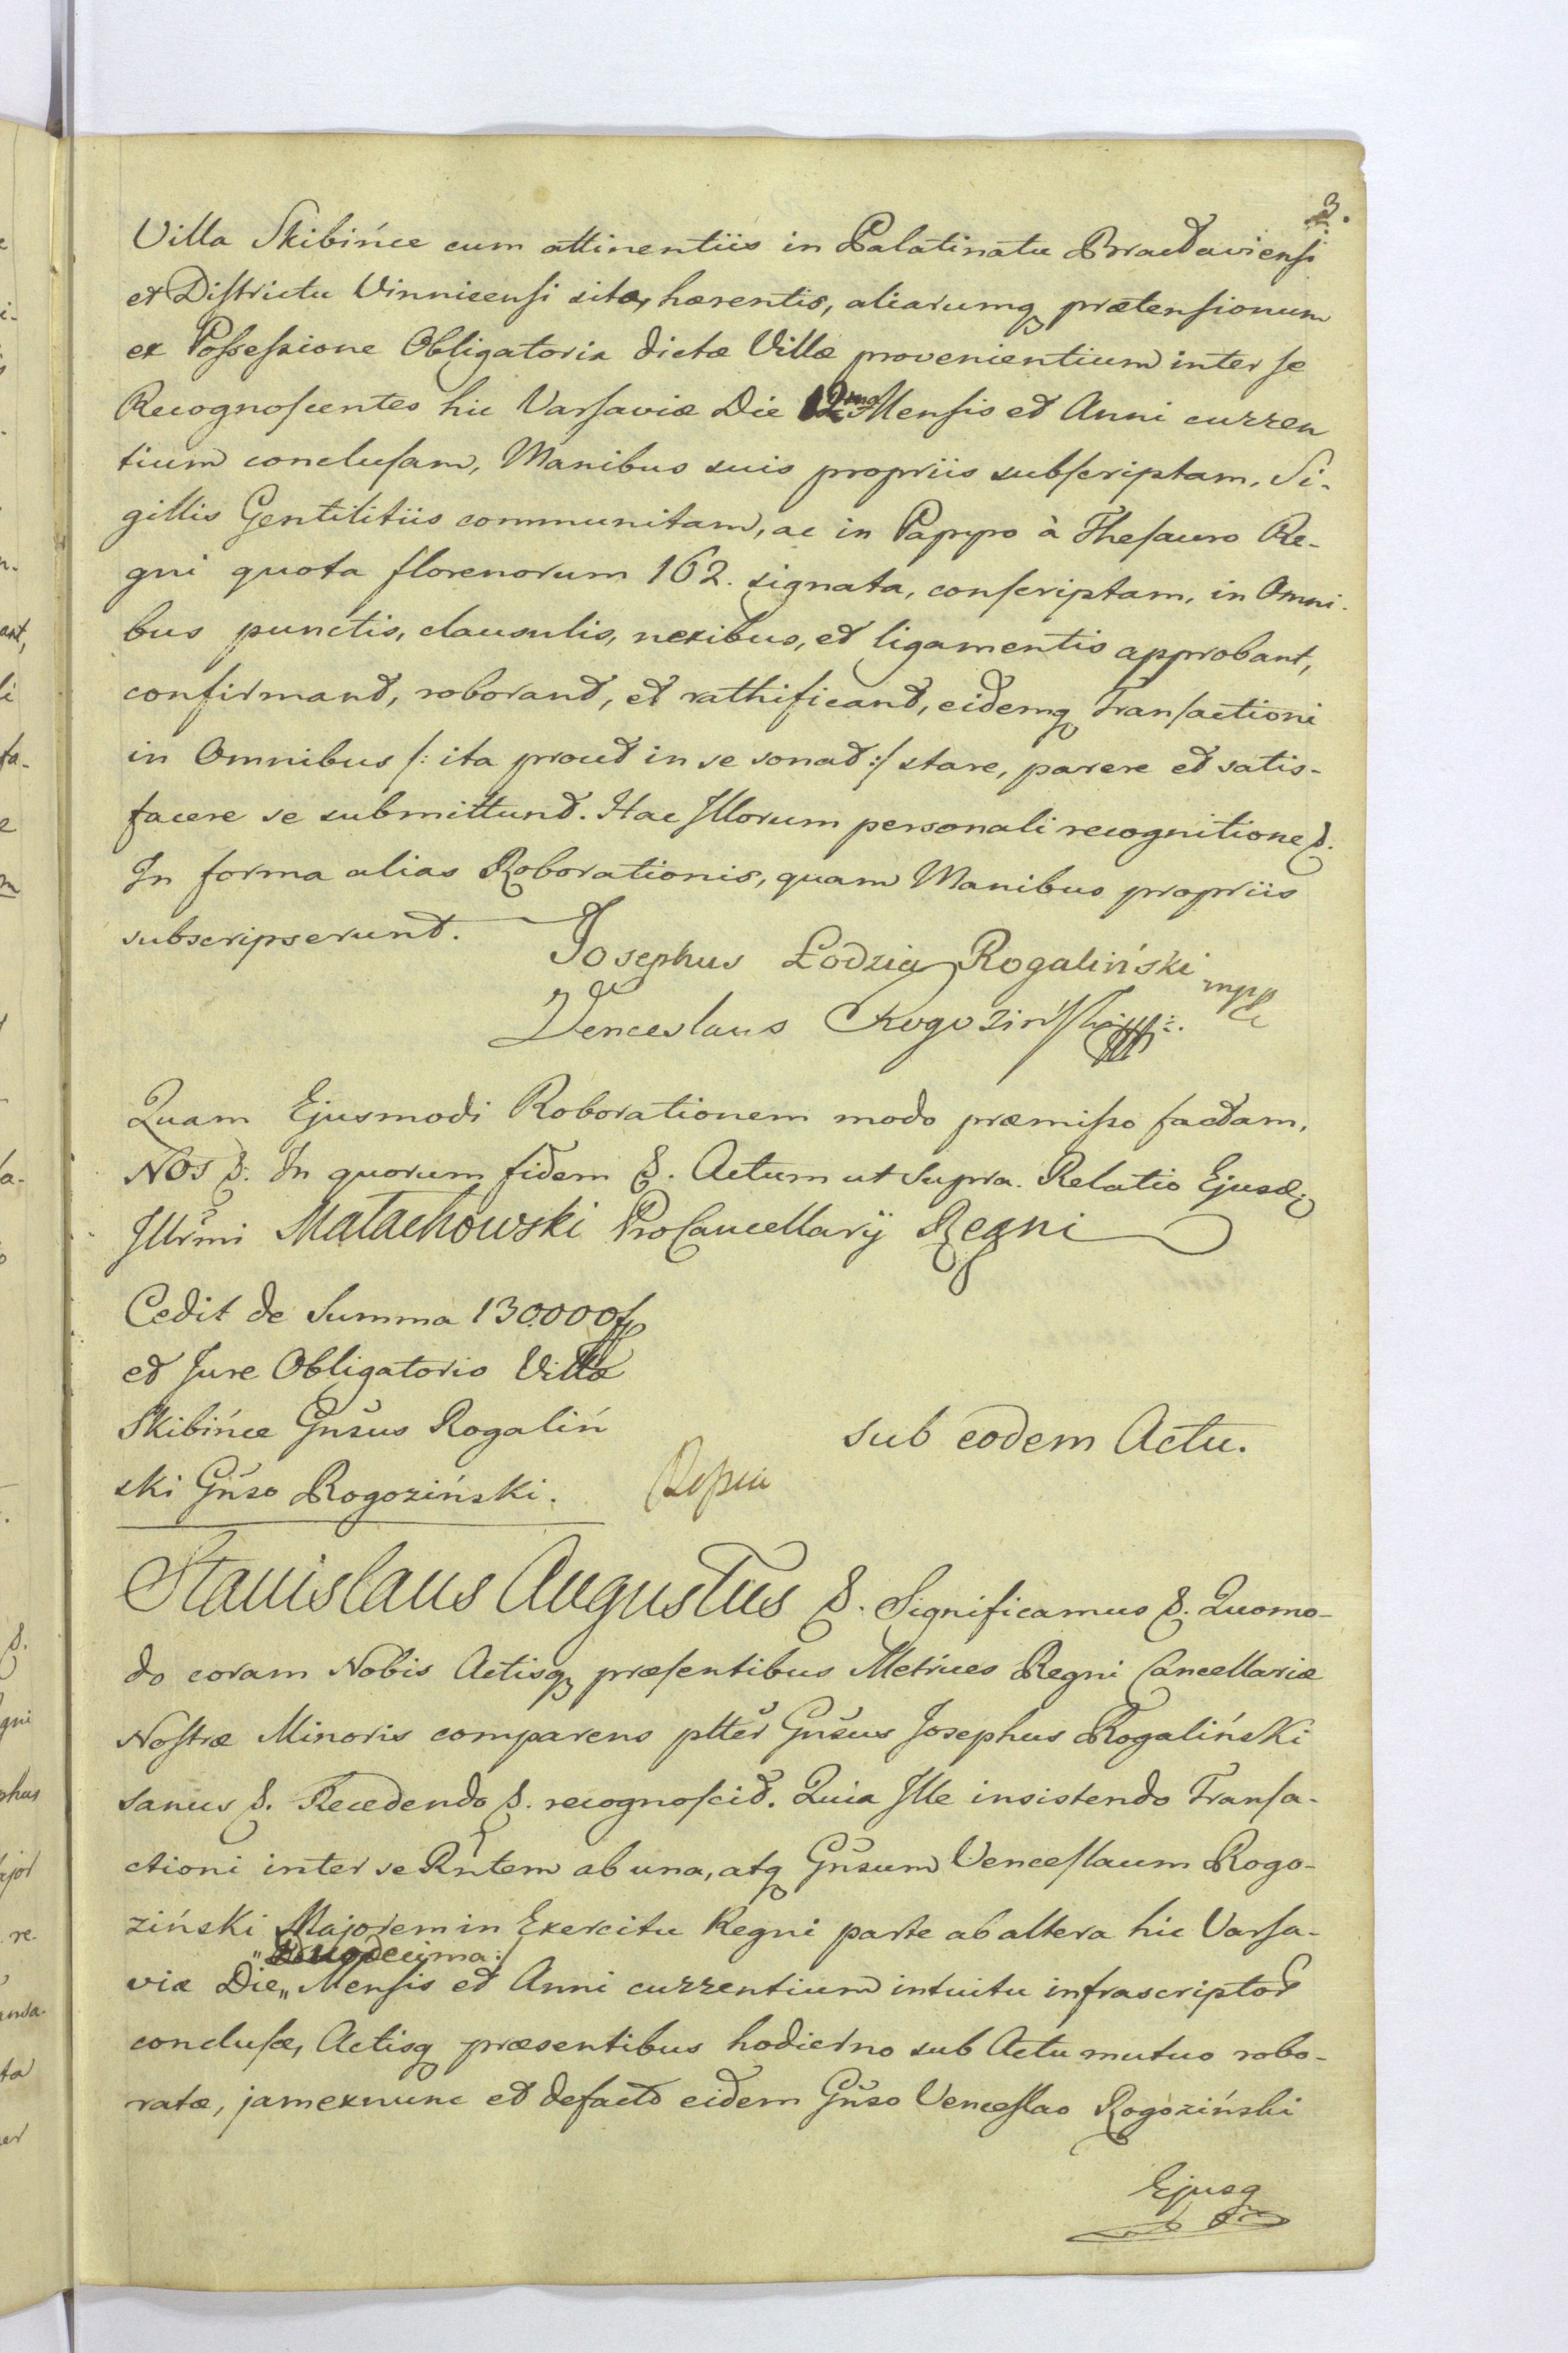 3.
Villa Skibińce cum attinentiis in Palatinatu Bracłaviensi
et Districtu Vinnicensi sitæ, hærentis, aliarumq prætensionum
ex Possessione Obligatoria dictæ Villæ provenientium inter se
Recognoscentes hic Varsaviæ Die 12ma Mensis et Anni curren
tium conclusam, Manibus suis propriis subscriptam, Si-
gillis Gentilitiis communitam, ac in Papyro à Thesauro Re-
gni quota florenorum 162. signata, conscriptam, in Omni-
bus punctis, clausulis, nexibus, et ligamentis approbant,
confirmant, roborant, et rathificant, eidemq Transactioni
in Omnibus /: ita prout in se sonat :/ stare, parere et satis-
facere se submittunt. Hac Illorum personali recognitione &.
In forma alias Roborationis, quam Manibus propriis
subscripserunt.
Josephus Łodzia Rogaliński mpp
Venceslaus Rogoziński
Quam Ejusmodi Roborationem modo præmisso factam,
NOS &. In quorum fidem &. Actum ut Supra. Relatio Ejusd:
Illrmi Małachowski ProCancellarÿ Regni
Cedit de Summa 130.000 f
et Jure Obligatorio Villæ
Skibińce Gnsus Rogaliń
ski Gnso Rogoziński.
sub eodem Actu.
Stanislaus Augustus &. Significamus &. Quomo-
do coram Nobis Actisq præsentibus Metrices Regni Cancellariæ
Nostræ Minoris comparens plter Gnsus Josephus Rogaliński
sanus &. Recedendo &. recognoscit. Quia Ille insistendo Transa-
ctioni inter se Rntem ab una, atq Gnsum Venceslaum Rogo-
ziński Majorem in Exercitu Regni parte ab altera hic Varsa-
" Duodecima :/
viæ Die „ Mensis et Anni currentium intuitu infrascriptor
conclusæ, Actisq præsentibus hodierno sub Actu mutuo robo-
ratæ, jam exnunc et defacto eidem Gnso Venceslao Rogoziński
Ejusq